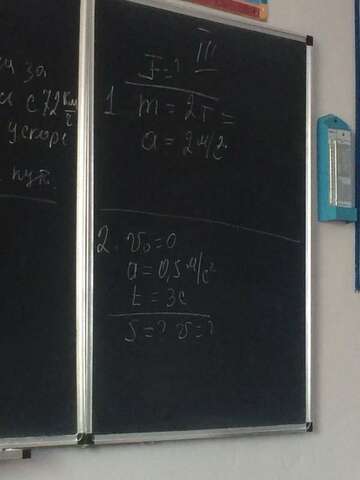 за
с 72 км/с
ускоре
пут.
III
F = ?
1. m = 2т =
a = 2 м/с²
2. v₀ = 0
a = 0,5 м/с²
t = 3с
S = ? v = ?